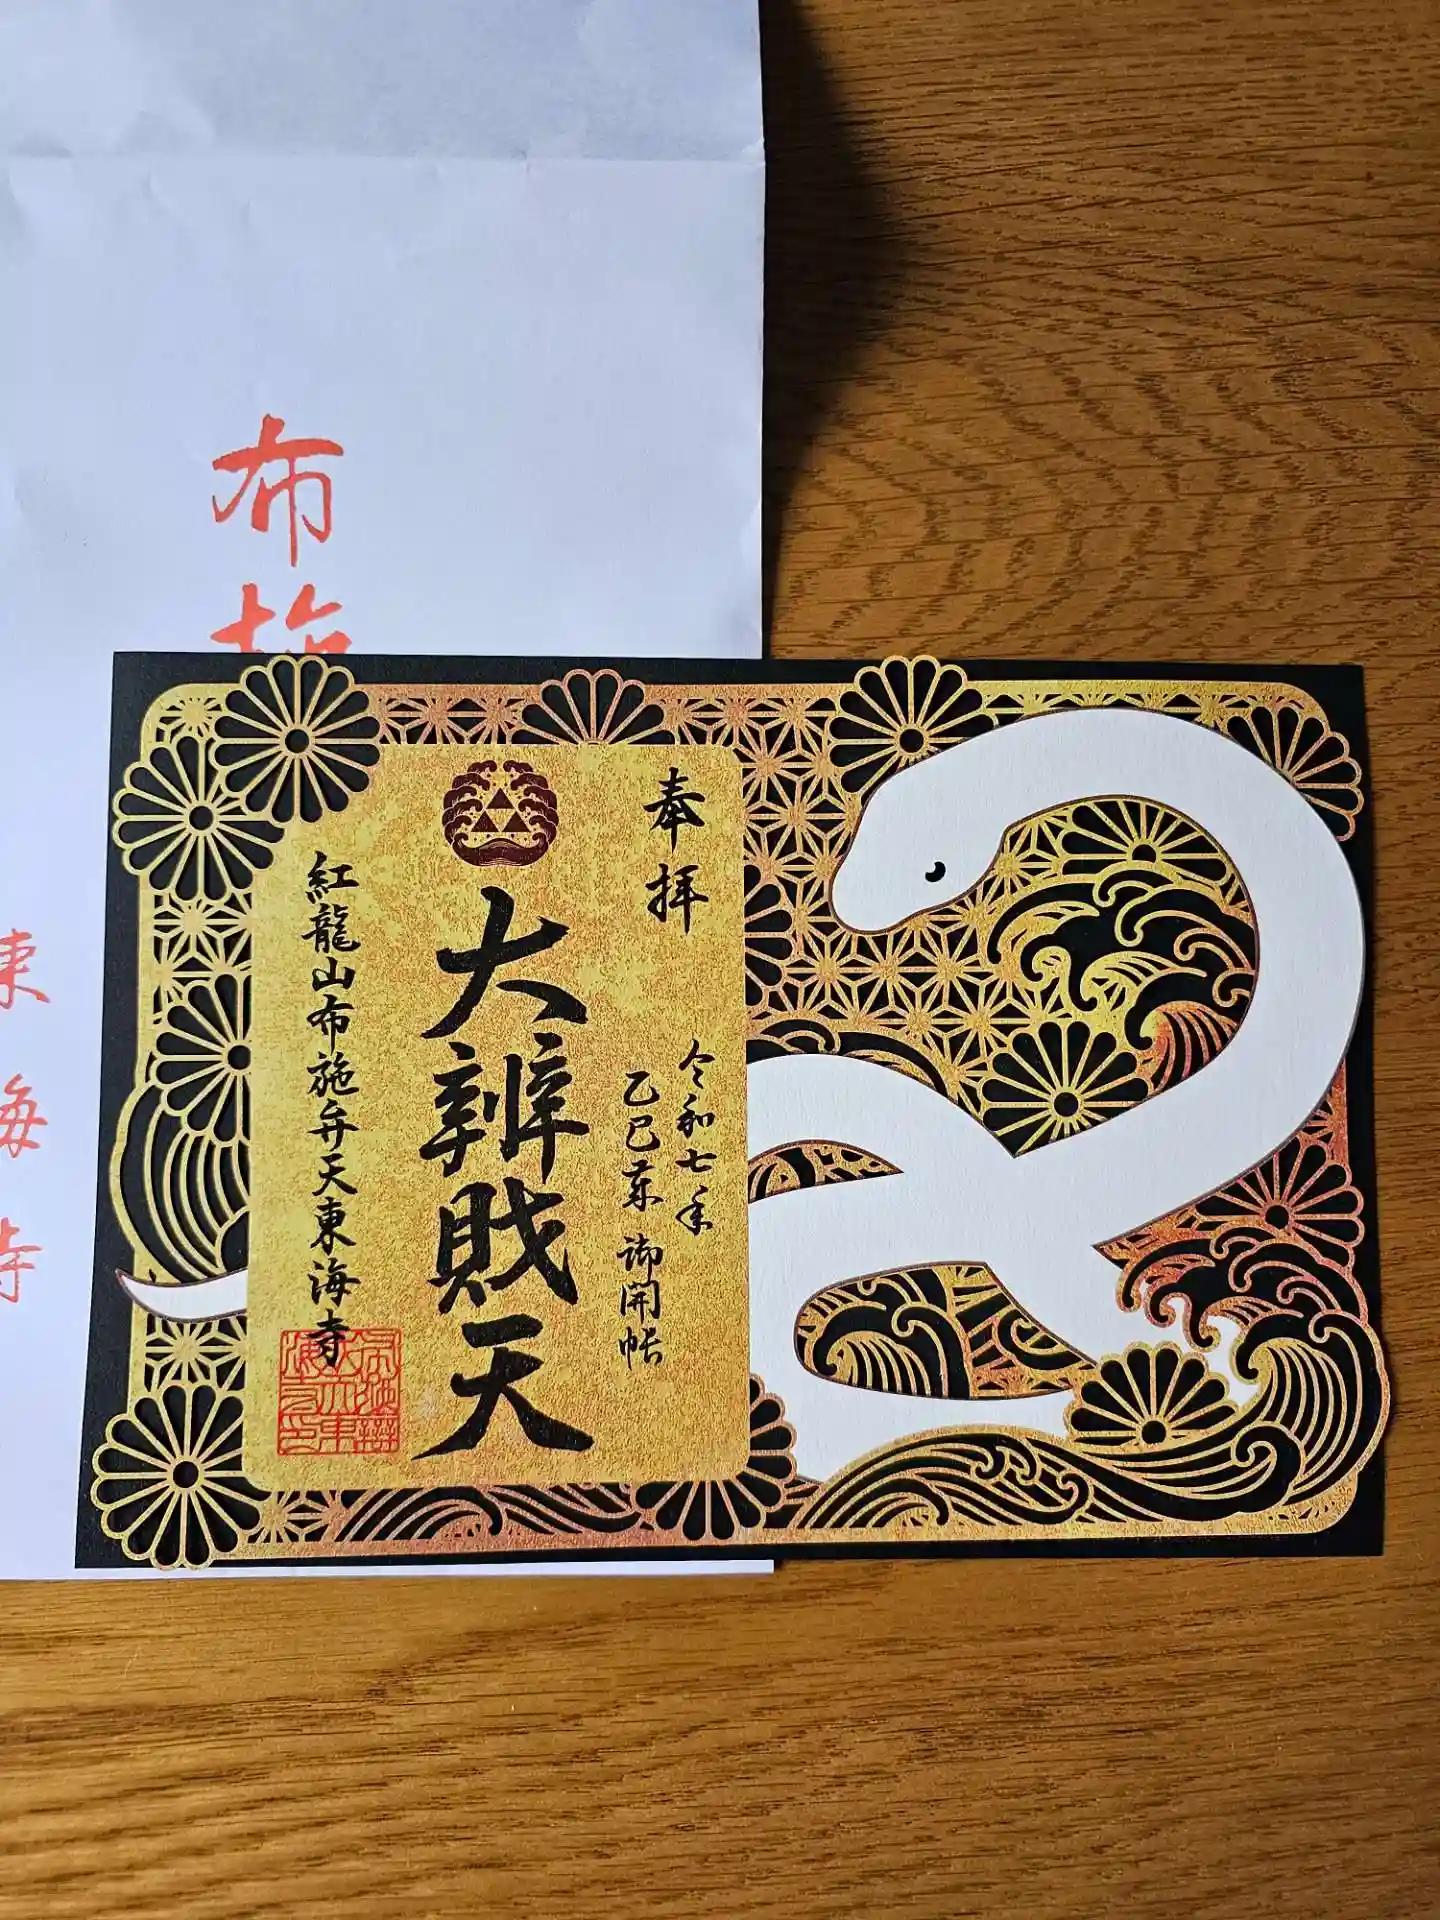 布施
東海寺
奉拝
令和七年
乙巳歳 御開帳
大辨財天
紅龍山布施弁天東海寺